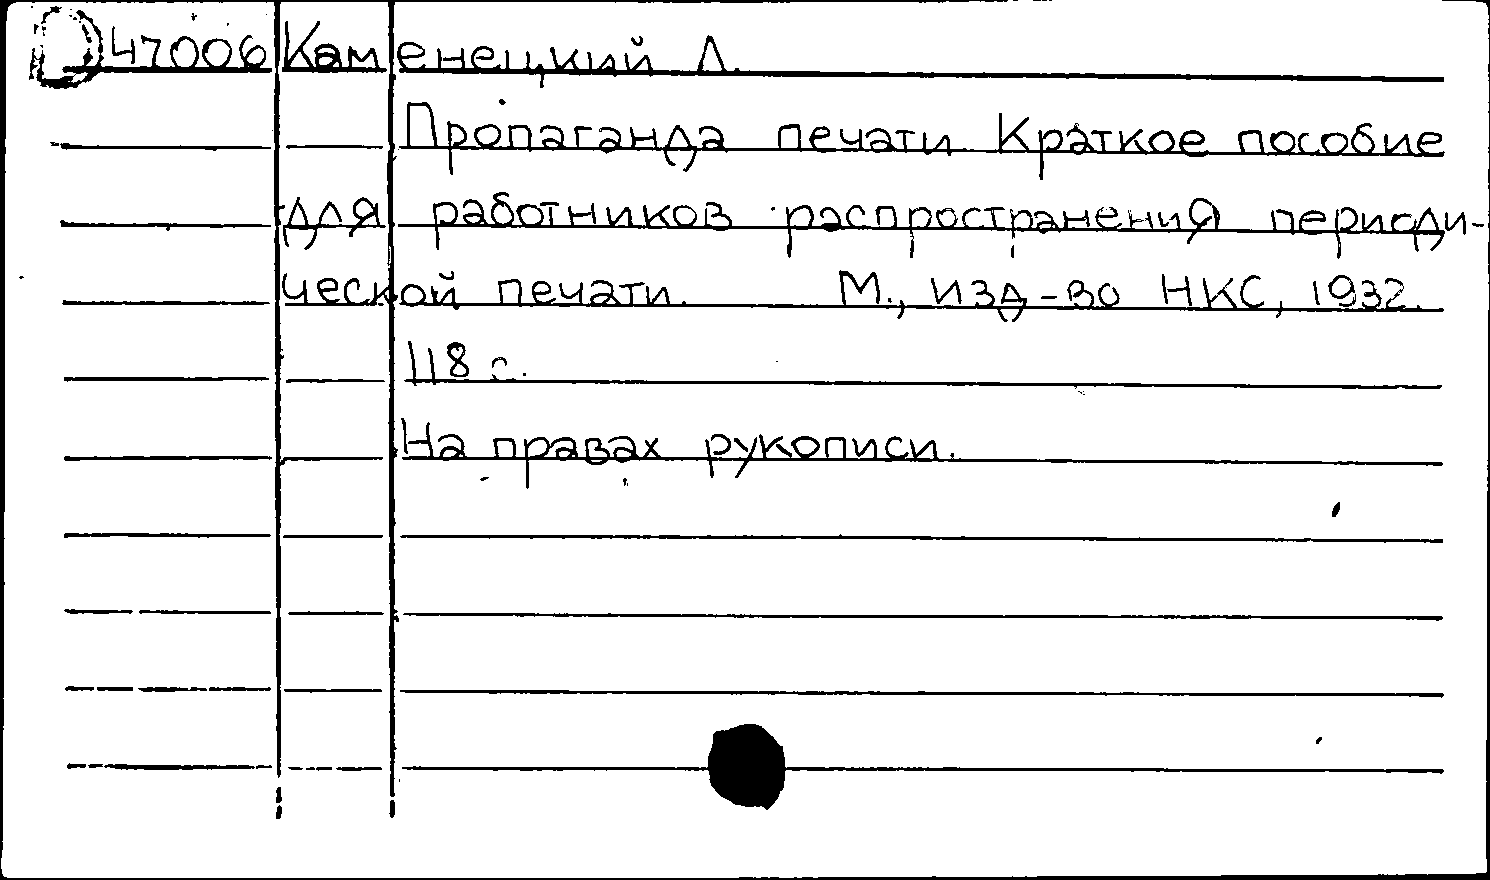 D47006 Каменецкий Л.
Пропаганда печати Краткое пособие
для работников распространения периоди-
ческой печати. М., изд-во НКС, 1932.
118 с.
На правах рукописи.